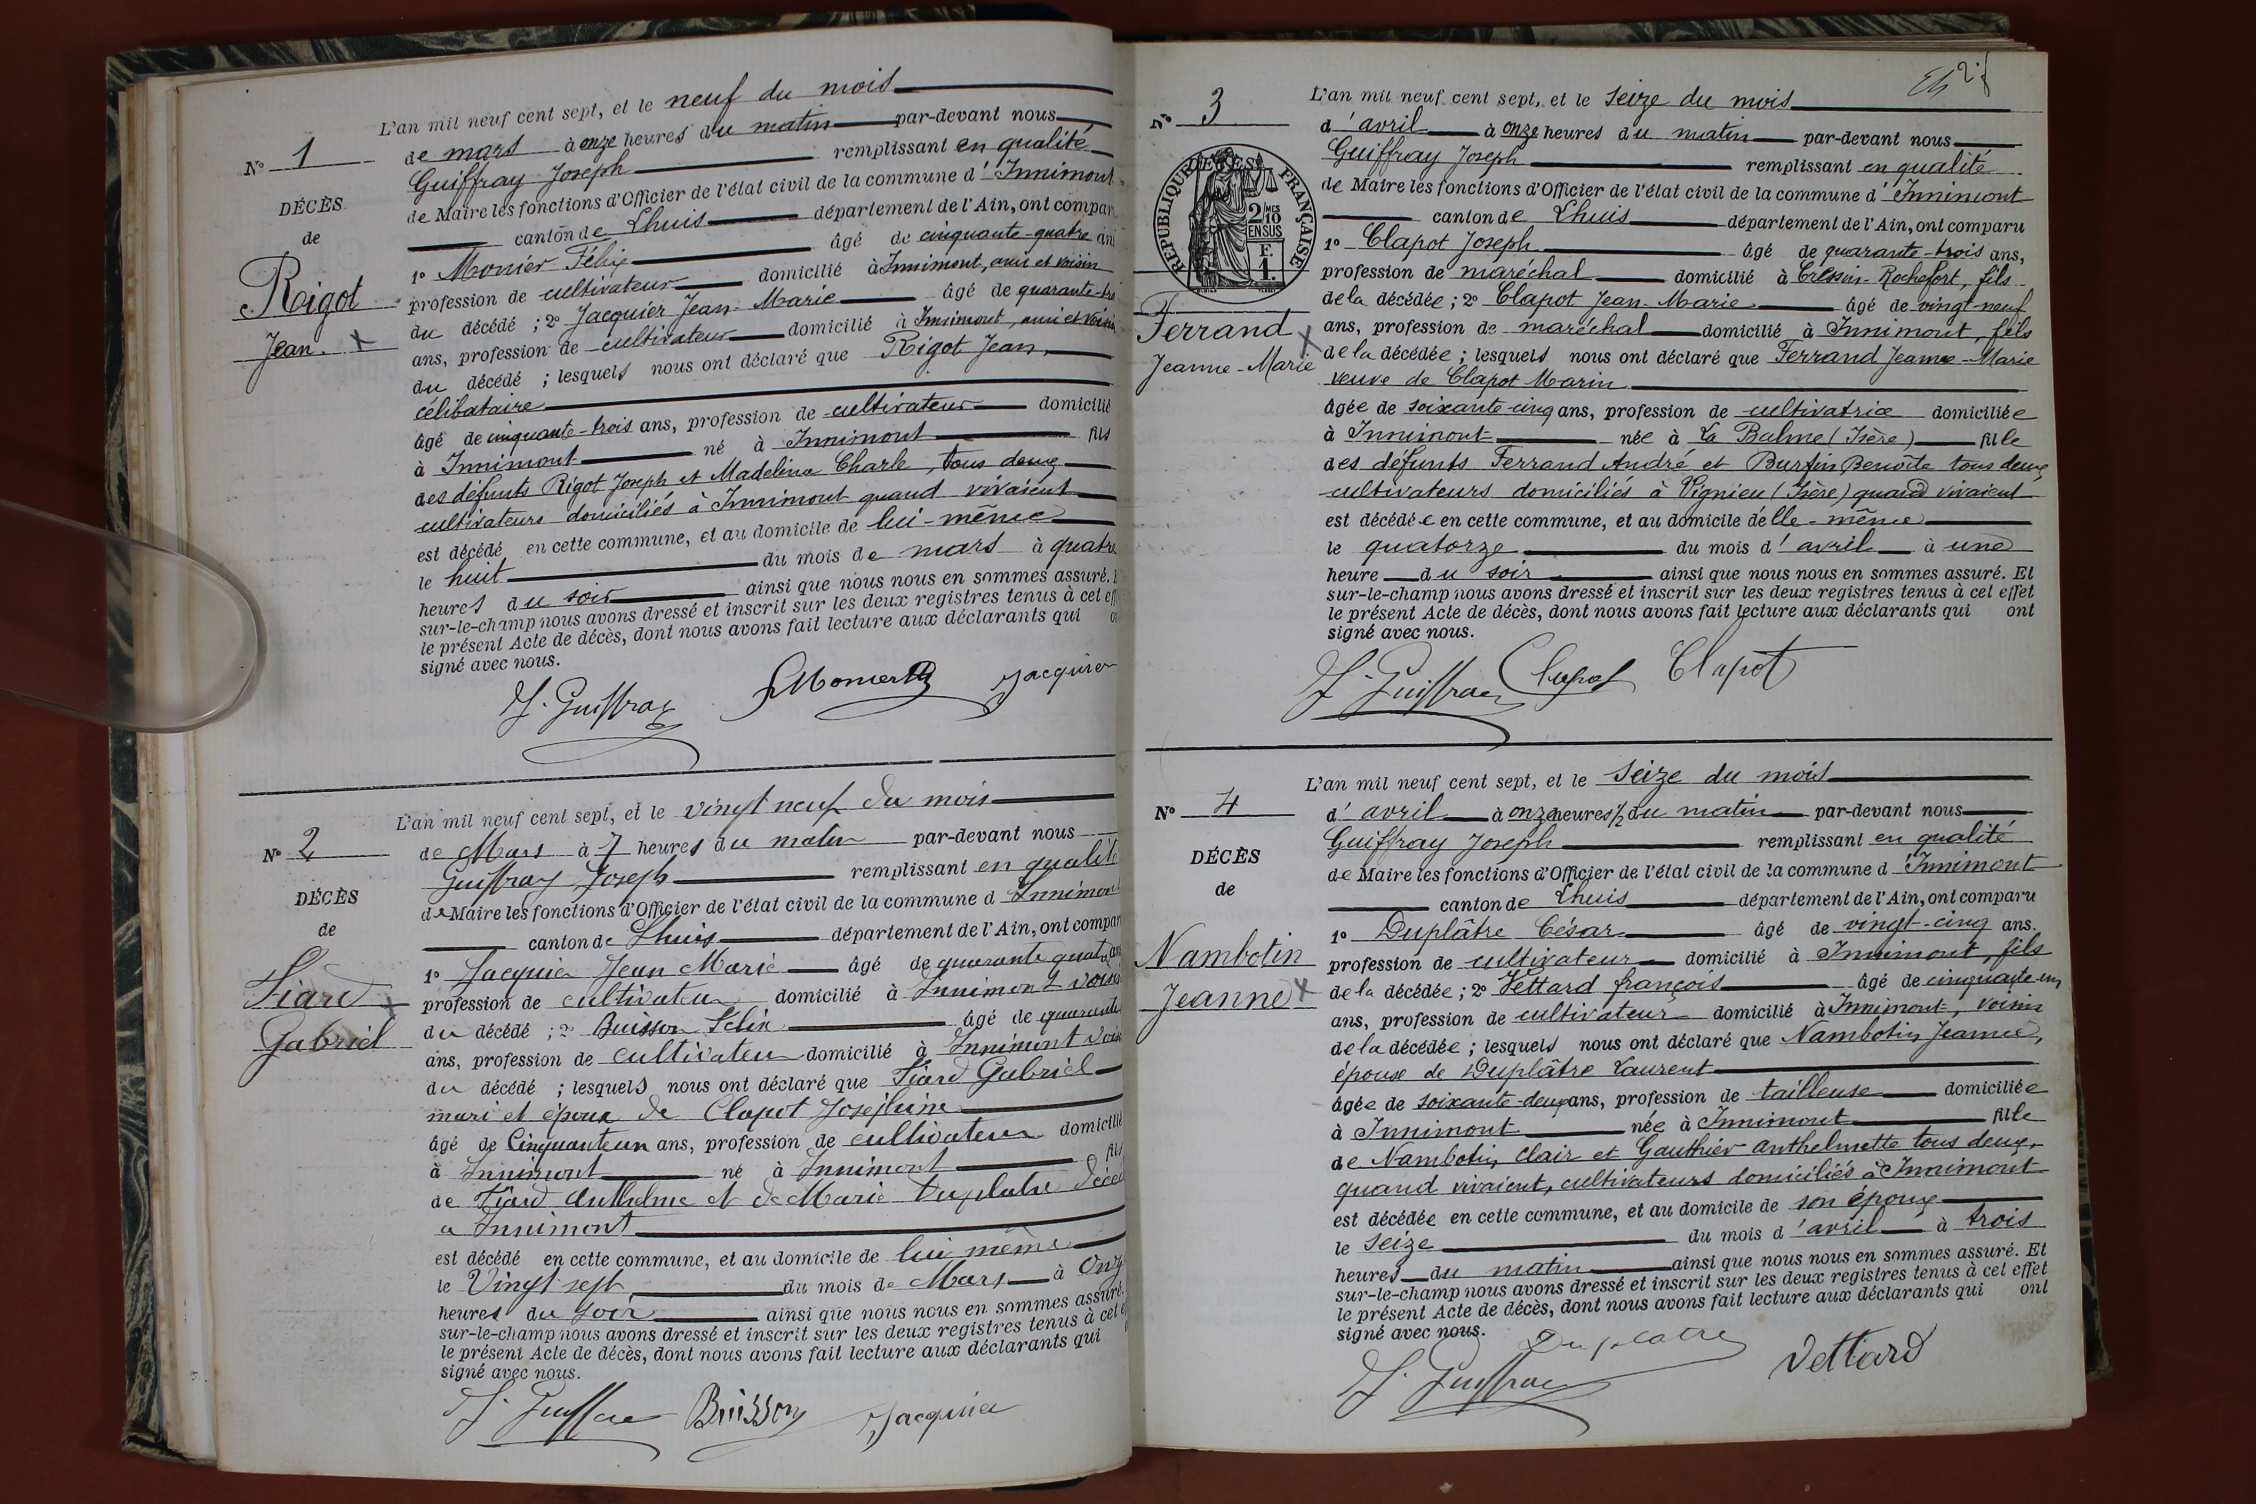 L'an mil neuf cent sept, et le neuf du mois
N° 1
de mars à onze heures du matin par-devant nous
Guiffray Joseph remplissant en qualité
DÉCÈS
de Maire les fonctions d'Officier de l'état civil de la commune d'Innimont
de
canton de Lhuis département de l'Ain, ont compar
1° Monier Félix âgé de cinquante-quatre ans
Rigot
profession de cultivateur domicilié à Innimont, ami et voisin
du décédé ; 2° Jacquier Jean-Marie âgé de quarante-tr
Jean.
ans, profession de cultivateur domicilié à Innimont, ami et voisin
du décédé ; lesquels nous ont déclaré que Rigot Jean,
célibataire
âgé de cinquante-trois ans, profession de cultivateur domicilié
à Innimont né à Innimont fils
des défunts Rigot Joseph et Madeleine Charle, tous deux
cultivateurs domiciliés à Innimont quand vivaient
est décédé en cette commune, et au domicile de lui-même
le huit du mois de mars à quatre
heures du soir ainsi que nous nous en sommes assuré. E
sur-le-champ nous avons dressé et inscrit sur les deux registres tenus à cet eff
le présent Acte de décès, dont nous avons fait lecture aux déclarants qui o
signé avec nous.
J. Guiffray F Monier Jacquier
L'an mil neuf cent sept, et le vingt neuf du mois
N° 2
de Mars à 7 heures du matin par-devant nous
Guiffray Joseph remplissant en qualité
DÉCÈS
de Maire les fonctions d'Officier de l'état civil de la commune d Innimont
de
canton de Lhuis département de l'Ain, ont compar
1° Jacquier Jean Marie âgé de quarante quatre ans
Fiard
profession de cultivateur domicilié à Innimont voisin
du décédé ; 2° Buisson Félix âgé de quarante
Gabriel
ans, profession de cultivateur domicilié à Innimont vois
du décédé ; lesquels nous ont déclaré que Fiard Gabriel
mari et époux de Clapot Joséphine
âgé de Cinquante un ans, profession de cultivateur domicilié
à Innimont né à Innimont fils
de Fiard Anthelme et de Marie Duplatre décéd
a Innimont
est décédé en cette commune, et au domicile de lui même
le Vingt sept du mois de Mars à Onz
heures du soir ainsi que nous nous en sommes assuré.
sur-le-champ nous avons dressé et inscrit sur les deux registres tenus à cet e
le présent Acte de décès, dont nous avons fait lecture aux déclarants qui
signé avec nous.
J. Guiffray Buisson Jacquier
L'an mil neuf cent sept, et le seize du mois
N° 3
d'avril à onze heures du matin par-devant nous
Guiffray Joseph remplissant en qualité
de Maire les fonctions d'Officier de l'état civil de la commune d'Innimont
canton de Lhuis département de l'Ain, ont comparu
RÉPUBLIQUE FRANÇAISE
2/MES
10
EN SUS
F.
1.
1° Clapot Joseph âgé de quarante-trois ans,
profession de maréchal domicilié à Cressin-Rochefort, fils
de la décédée ; 2° Clapot Jean-Marie âgé de vingt-neuf
Ferrand
ans, profession de maréchal domicilié à Innimont, fils
de la décédée ; lesquels nous ont déclaré que Ferrand Jeanne-Marie
Jeanne-Marie
veuve de Clapot Marin
âgée de soixante-cinq ans, profession de cultivatrice domiciliée
à Innimont née à La Balme (Isère) fille
des défunts Ferrand André et Burfin Benoîte tous deux
cultivateurs domiciliés à Vignieu (Isère) quand vivaient
est décédée en cette commune, et au domicile d'elle-même
le quatorze du mois d'avril à une
heure du soir ainsi que nous nous en sommes assuré. Et
sur-le-champ nous avons dressé et inscrit sur les deux registres tenus à cet effet
le présent Acte de décès, dont nous avons fait lecture aux déclarants qui ont
signé avec nous.
J. Guiffray Clapot Clapot
L'an mil neuf cent sept, et le seize du mois
N° 4
d'avril à onze heures ½ du matin par-devant nous
Guiffray Joseph remplissant en qualité
DÉCÈS
de Maire les fonctions d'Officier de l'état civil de la commune d'Innimont
de
canton de Lhuis département de l'Ain, ont comparu
1° Duplâtre César âgé de vingt-cinq ans.
Nambotin
profession de cultivateur domicilié à Innimont, fils
de la décédée ; 2° Vettard françois âgé de cinquante-un
Jeanne
ans, profession de cultivateur domicilié à Innimont, voisin
de la décédée ; lesquels nous ont déclaré que Nambotin Jeanne,
épouse de Duplâtre Laurent
âgée de soixante-deux ans, profession de tailleuse domiciliée
à Innimont née à Innimont fille
de Nambotin Clair et Gauthier Anthelmette tous deux,
quand vivaient, cultivateurs domiciliés à Innimont
est décédée en cette commune, et au domicile de son époux
le seize du mois d'avril à trois
heures du matin ainsi que nous nous en sommes assuré. Et
sur-le-champ nous avons dressé et inscrit sur les deux registres tenus à cet effet
le présent Acte de décès, dont nous avons fait lecture aux déclarants qui ont
signé avec nous.
J. Guiffray Duplatre Vettard